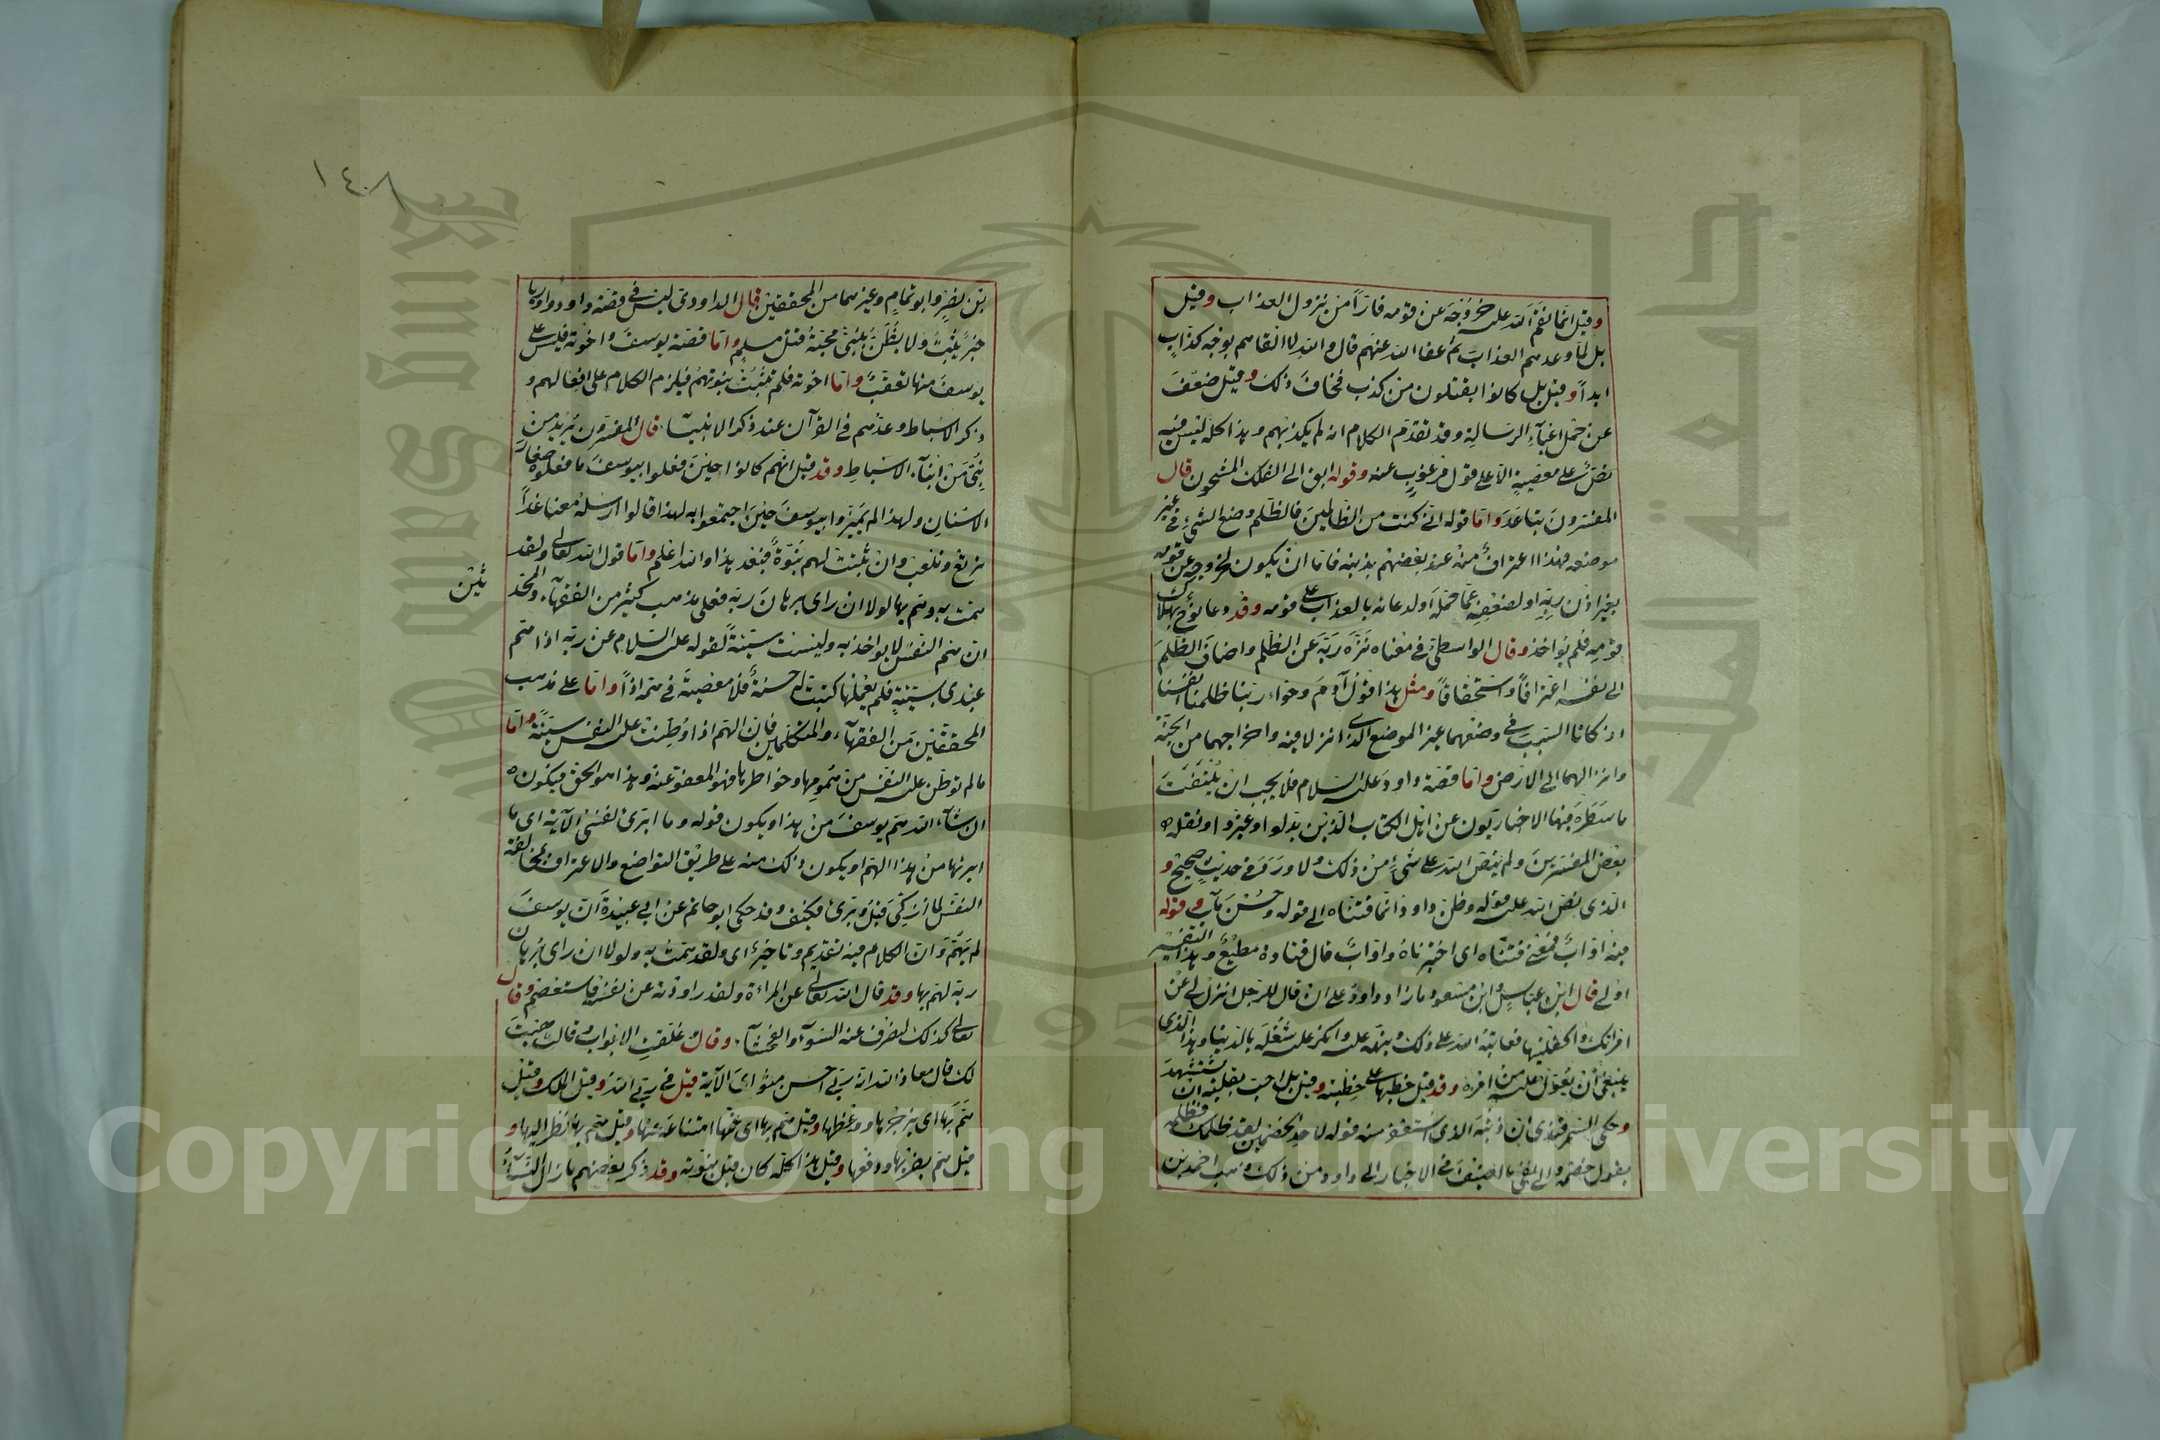 وقيل انما نقم الله على خروجه عن قومه فارا من نزول العذاب وقيل
بل لما وعدهم العذاب ثم عفا الله عنهم قال والله لا القاهم بوجه كذاب
ابدا وقيل بل كانوا يقتلون من كذب فخاف ذلك وقيل ضعف
عن حمل اعباء الرسالة وقد تقدم الكلام انه لم يكذبهم وهذا كله ليس فيه
نص على معصية الا على قول مرغوب عنه وقوله ابق الى الفلك المشحون قال
المفسرون تباعد واما قوله انى كنت من الظالمين فالظلم وضع الشئ في غير
موضعه فهذا اعتراف منه عند بعضهم بذنبه فاما ان يكون لخروجه عن قومه
بغير اذن ربه او لضعفه عما حمله او لدعائه بالعذاب على قومه وقد دعا نوح بهلاك
قومه فلم يؤاخذ وقال الواسطى في معناه نزه ربه عن الظلم واضاف الظلم
الى نفسه اعترافا واستحقاقا ومثل هذا قول آدم وحواء ربنا ظلمنا انفسنا
اذ كانا السبب في وضعهما غير الموضع الذى انزلا فيه واخراجهما من الجنة
وانزالهما الى الارض واما قصة داود عليه السلام فلا يجب ان يلتفت
ما سطره فيها الاخباريون عن اهل الكتاب الذين بدلوا وغيروا ونقله
بعض المفسرين ولم ينص الله على شئ من ذلك ولا ورد في حديث صحيح و
الذى نص الله عليه قوله وظن داود انما فتناه الى قوله وحسن مآب وقوله
فيه اواب فمعنى فتناه اى اختبرناه واواب قال قتادة مطيع وهذا التفسير
اولى قال ابن عباس وابن مسعود ما زاد داود على ان قال للرجل انزل لى عن
امرأتك واكفلنيها فعاتبه الله على ذلك ونبهه عليه وانكر عليه شغله بالدنيا وهذا الذى
ينبغى ان يعول عليه من امره وقد قيل خطبها على خطبته وقيل بل احب بقلبه ان يستشهد
وحكى السمرقندى ان ذنبه الذى استغفر منه قوله لاحد الخصمين لقد ظلمك فظلمه
بقول خصمه والى نفى ما اضيف في الاخبار الى داود من ذلك ذهب احمد بن
١٤٨
بن نصر وابو تمام وغيرهما من المحققين قال الداودى ليس في قصة داود واوريا
خبر يثبت ولا يظن بنبى محبة قتل مسلم واما قصة يوسف واخوته فليس على
يوسف منها تعقب واما اخوته فلم تثبت نبوتهم فيلزم الكلام على افعالهم و
ذكر الاسباط وعدهم في القرآن عند ذكر الانبياء قال المفسرون يريد من
نبئ من ابناء الاسباط وقد قيل انهم كانوا حين فعلوا بيوسف ما فعلوه صغار
الاسنان ولهذا لم يميزوا يوسف حين اجتمعوا به لهذا قالوا ارسله معنا غدا
نرتع ونلعب وان ثبتت لهم نبوة فبعد هذا والله اعلم واما قول الله تعالى ولقد
همت به وهم بها لولا ان راى برهان ربه فعلى مذهب كثير من الفقهاء والمحد
ثين
ان هم النفس لا يؤاخذ به وليست سيئة لقوله عليه السلام عن ربه اذا هم
عبدى بسيئة فلم يعملها كتبت له حسنة فلا معصية في همه اذا واما على مذهب
المحققين من الفقهاء والمتكلمين فان الهم اذا وطنت عليه النفس سيئة واما
ما لم توطن عليه النفس من همومها وخواطرها فهو المعفو عنه وهذا هو الحق فيكون
ان شاء الله هم يوسف من هذا ويكون قوله وما ابرئ نفسى الآية اى ما
ابرئها من هذا الهم او يكون ذلك منه على طريق التواضع والاعتراف بمخالفة
النفس لما زكى قبل وبرئ فكيف وقد حكى ابو حاتم عن ابى عبيدة ان يوسف
لم يهم وان الكلام فيه تقديم وتاخير اى ولقد همت به ولولا ان راى برهان
ربه لهم بها وقد قال الله تعالى عن المراة ولقد راودته عن نفسه فاستعصم وقال
تعالى كذلك لنصرف عنه السوء والفحشاء وقال غلقت الابواب وقالت هيت
لك قال معاذ الله انه ربى احسن مثواى الآية قيل في ربى الله وقيل الملك وقيل
هم بها اى بزجرها ووعظها وقيل هم بها اى غمها امتناعه عنها وقيل هم بها نظر اليها و
قيل هم بضربها ودفعها وقيل هذا كله كان قبل نبوته وقد ذكر بعضهم ما زال النساء
جامعة الملك سعود
King Saud University
1957
Copyright © King Saud University